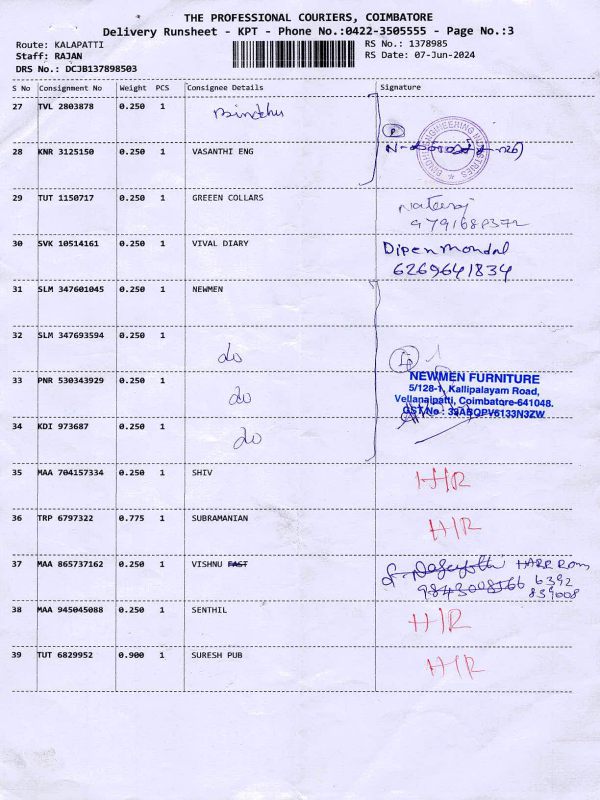 THE PROFESSIONAL COURIERS, COIMBATORE
Delivery Runsheet - KPT - Phone No.:0422-3505555 - Page No.:3
Route: KALAPATTI
RS No.: 1378985
Staff: RAJAN
RS Date: 07-Jun-2024
DRS No.: DCJB137898503
S No Consignment No Weight PCS Consignee Details Signature
27 TVL 2803878 0.250 1
28 KNR 3125150 0.250 1 VASANTHI ENG
29 TUT 1150717 0.250 1 GREEEN COLLARS
9791688372
30 SVK 10514161 0.250 1 VIVAL DIARY Dipen Mondal
6269641834
31 SLM 347601045 0.250 1 NEWMEN
32 SLM 347693594 0.250 1 do
33 PNR 530343929 0.250 1 do
NEWMEN FURNITURE
5/128-1, Kallipalayam Road,
Vellanaipatti, Coimbatore-641048.
GST No : 33ABQPV6133N3ZW
34 KDI 973687 0.250 1 do
35 MAA 704157334 0.250 1 SHIV H/R
36 TRP 6797322 0.775 1 SUBRAMANIAN H/R
37 MAA 865737162 0.250 1 VISHNU FAST
6392
839008
38 MAA 945045088 0.250 1 SENTHIL H/R
39 TUT 6829952 0.900 1 SURESH PUB H/R